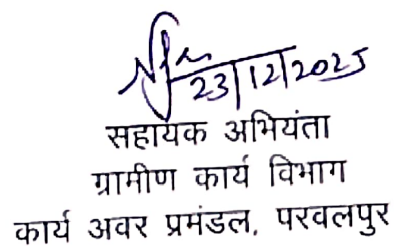 23/12/2025
सहायक अभियंता
ग्रामीण कार्य विभाग
कार्य अवर प्रमंडल, परवलपुर